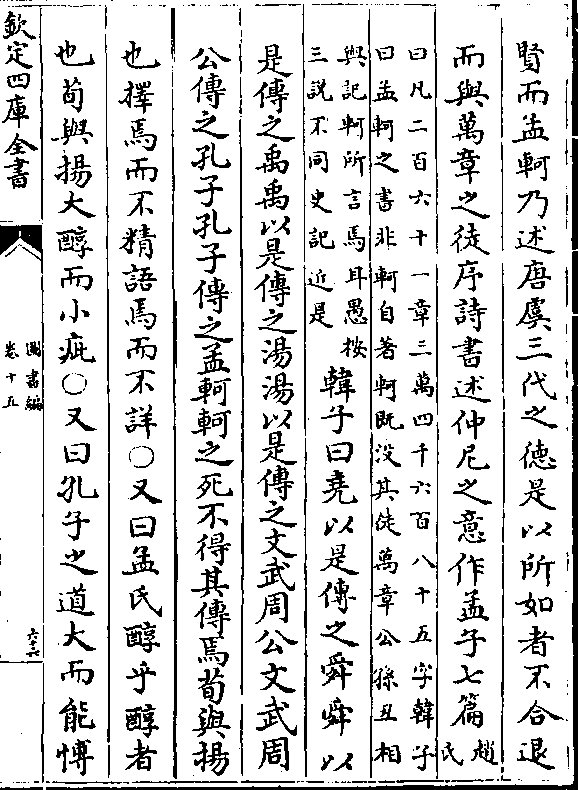 賢而孟軻乃述唐虞三代之德是以所如者不合退
而與萬章之徒序詩書述仲尼之意作孟子七篇趙氏
曰凡二百六十一章三萬四千六百八十五字韓子
曰孟軻之書非軻自著軻既没其徒萬章公孫丑相
與記軻所言焉耳愚按
三說不同史記近是
韓子曰堯以是傳之舜舜以
是傳之禹禹以是傳之湯湯以是傳之文武周公文武周
公傳之孔子孔子傳之孟軻軻之死不得其傳焉荀與揚
也擇焉而不精語焉而不詳○又曰孟氏醇乎醇者
也荀與揚大醇而小疵○又曰孔子之道大而能博
欽定四庫全書
圖書編
卷十五